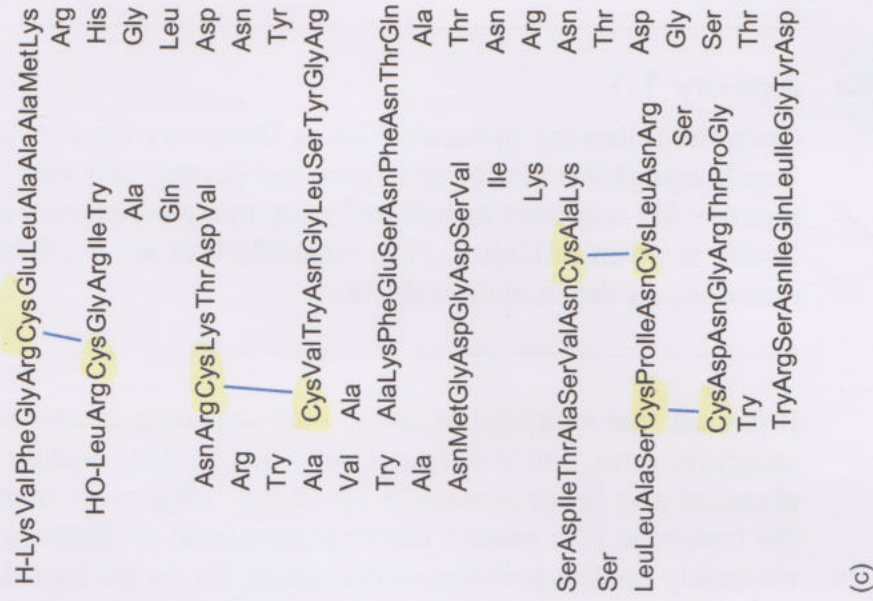 H-LysValPheGlyArgCysGluLeuAlaAlaAlaMetLys
Arg
HO-LeuArgCysGlyArgIleTry His
Ala Gly
Gln Leu
AsnArgCysLysThrAspVal Asp
Arg Asn
Try Tyr
Ala CysValTryAsnGlyLeuSerTyrGlyArg
Val Ala
Try AlaLysPheGluSerAsnPheAsnThrGln
Ala Ala
AsnMetGlyAspGlyAspSerVal Thr
Ile Asn
Lys Arg
SerAspIleThrAlaSerValAsnCysAlaLys Asn
Ser Thr
LeuLeuAlaSerCysProIleAsnCysLeuAsnArg Asp
Ser Gly
CysAspAsnGlyArgThrProGly Ser
Try Thr
TryArgSerAsnIleGlnLeuIleGlyTyrAsp
(c)